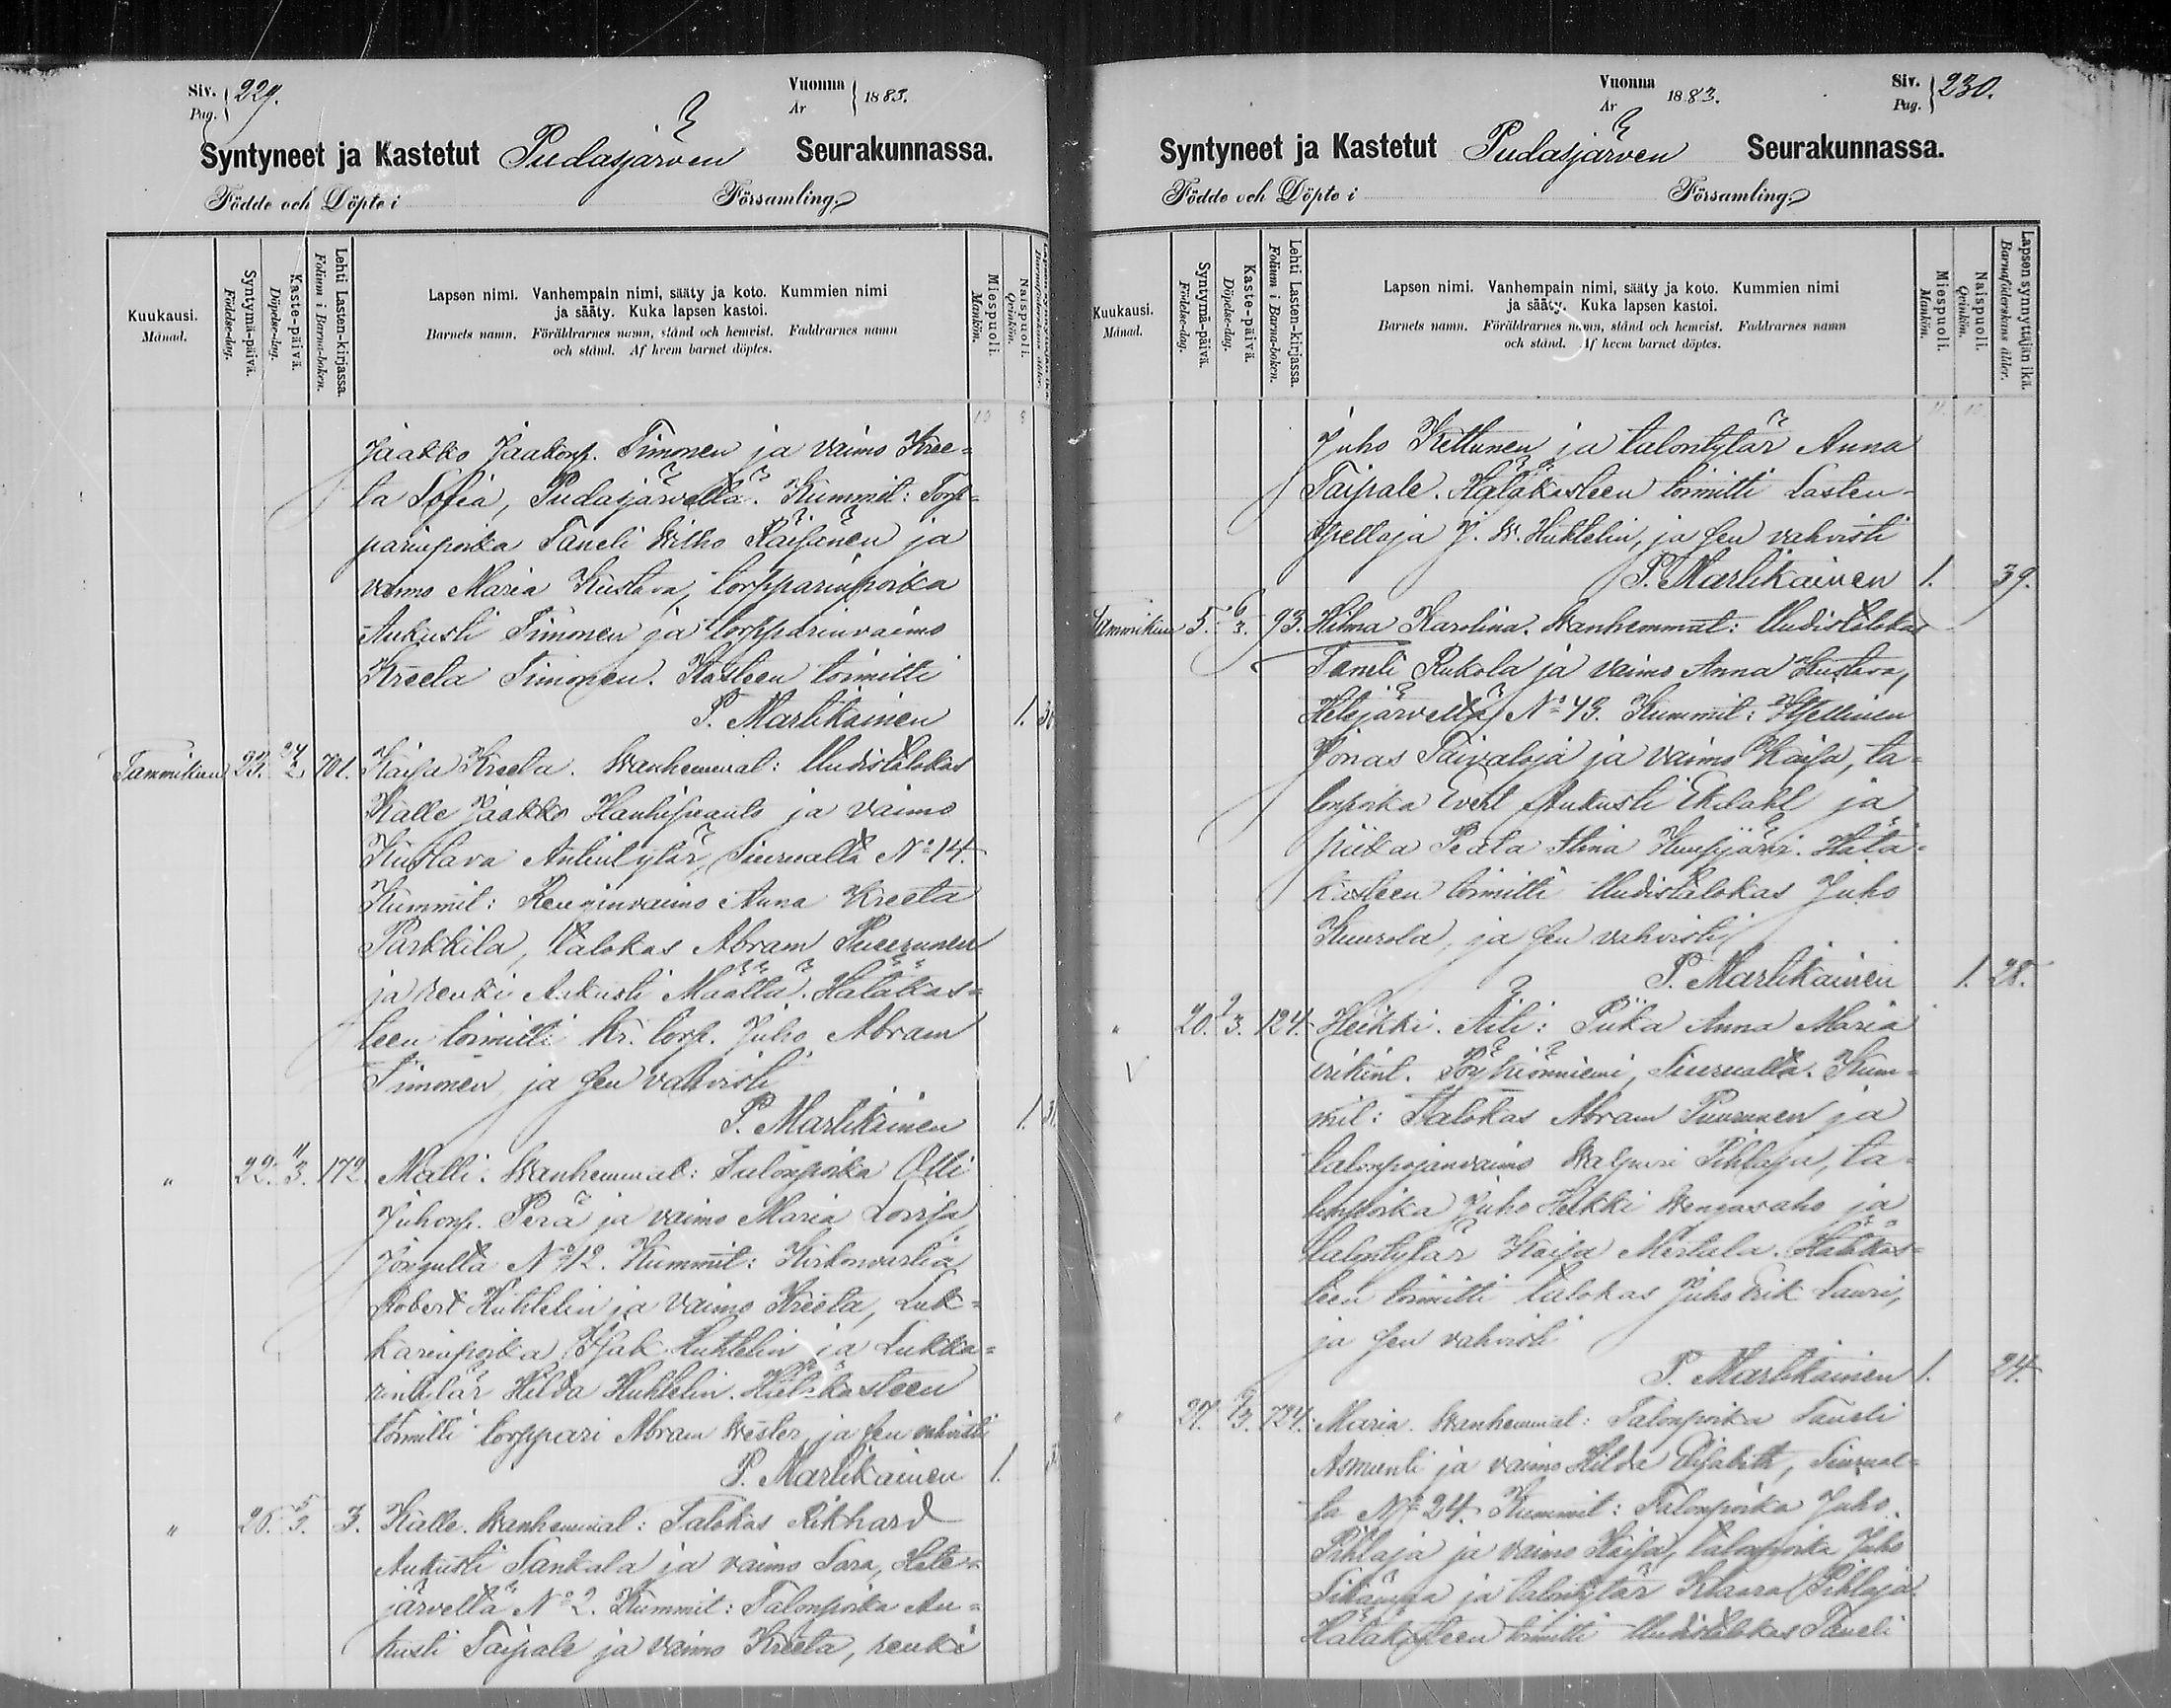 Siv. Pag. } 229.
Vuonna År } 1883.
Syntyneet ja Kastetut Pudasjärven Seurakunnassa.
Födde och Döpte i Församling.
Kuukausi. Månad.
Syntymä-päivä. Födelse-dag.
Kaste-päivä. Döpelse-dag.
Lehti Lasten-kirjassa. Folium i Barna-boken.
Lapsen nimi. Vanhempain nimi, sääty ja koto. Kummien nimi
ja sääty. Kuka lapsen kastoi.
Barnets namn. Föräldrarnes namn, stånd och hemvist. Faddrarnes namn
och stånd. Af hvem barnet döptes.
Miespuoli. Mankön.
Naispuoli. Qvinkön.
10 8
Jaakko Jaakonp. Timonen ja vaimo Kree=
ta Sofia, Pudasjärvellä. Kummit: Torp=
parinpoika Taneli Wilho Räisänen ja
vaimo Maria Kustava, torpparinpoika
Aukusti Timonen ja torpparinvaimo
Kreeta Timonen. Kasteen toimitti
P. Martikainen 1.
Tammikuu 701. Kaisa Kreeta. Wanhemmat: Uudistalokas
Kalle Jaakko ja vaimo
Kustava Antintytär, Siurualla No 14.
Kummit: Renginvaimo Anna Kreeta
Parkkila, talokas Abram Puurunen
ja renki Aukusti Määttä. Hätäkas=
teen toimitti Kr. torp. Juho Abram
Timonen ja sen vahvisti
P. Martikainen 1.
" 22. 11/3. 172. Matti. Wanhemmat: Talonpoika Olli
Juhonp. Perä ja vaimo Maria Lovisa,
Jongulla No 12. Kummit: Kirkonvartia
Robert Huhtelin ja vaimo Kreeta, Luk=
karinpoika Isak Huhtelin ja Lukka=
rintytär Hilda Huhtelin. Hätäkasteen
toimitti torppari Abram Wester, ja sen vahvisti
P. Martikainen 1.
" 26. 5/3. 3. Kalle. Wanhemmat: Talokas Rikhard
Aukusti Sankala ja vaimo Sara, Hete=
järvellä No 2. Kummit: Talonpoika Au=
kusti Taipale ja vaimo Kreeta, renki
Vuonna År 1883.
Siv. Pag. } 230.
Syntyneet ja Kastetut Pudasjärven Seurakunnassa.
Födde och Döpte i Församling.
Kuukausi. Månad.
Syntymä-päivä. Födelse-dag.
Kaste-päivä. Döpelse-dag.
Lehti Lasten-kirjassa. Folium i Barna-boken.
Lapsen nimi. Vanhempain nimi, sääty ja koto. Kummien nimi
ja sääty. Kuka lapsen kastoi.
Barnets namn. Föräldrarnes namn, stånd och hemvist. Faddrarnes namn
och stånd. Af hvem barnet döptes.
Miespuoli. Mankön.
Naispuoli. Qvinkön.
Lapsen synnyttäjän ikä. Barnaföderskans ålder.
11. 10.
Juho Kettunen ja talontytär Anna
Taipale. Hätäkasteen toimitti Lasten-
opettaja J. W. Huhtelin, ja sen vahvisti
P. Martikainen 1. 39.
Tammikuu 5. 6/3. 93. Hilma Karolina. Wanhemmat: Uudistalokas
Taneli Rukola ja vaimo Anna Kustava,
Hetejärvellä No 43. Kummit: Itsellinen
Jonas Taivaloja ja vaimo Kaisa, ta=
lonpoika Evert Aukusti Ekdahl ja
piika Peata Stina. Hätä=
kasteen toimitti Uudistalokas Juho
Kuurola, ja sen vahvisti
P. Martikainen 1. 28.
" 20. 124. Heikki. Äiti: Piika Anna Maria
Erikint. Pöykiönniemi, Siurualla. Kum=
mit: Talokas Abram Puurunen ja
talonpojanvaimo Walpuri Pihlaja, ta=
lonpoika Juho Heikki Wengasaho ja
talontytär Kaisa Mertala. Hätäkas=
teen toimitti talokas Juho Erik Lauri,
ja sen vahvisti
P. Martikainen 1. 24.
" 27. 724. Maria. Wanhemmat: Talonpoika Taneli
Asmunti ja vaimo Hilda Elisabeth, Siurual=
la No 24. Kummit: Talonpoika Juho
Pihlaja ja vaimo Kaisa, talonpoika Juho
ja talontytär Klaara Pihlaja.
Hätäkasteen toimitti Uudistalokas Taneli